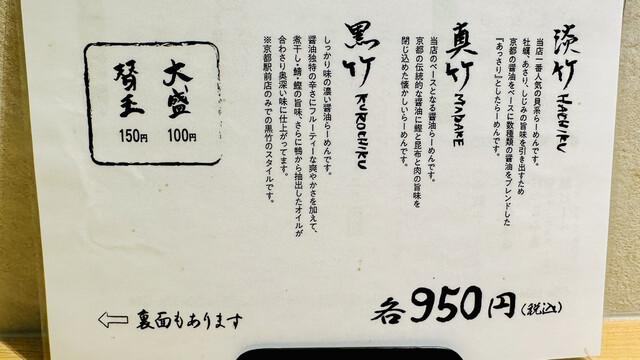 淡竹 HACHIKU
当店一番人気の貝系らーめんです。
牡蠣、あさり、しじみの旨味を引き出すため
京都の醤油をベースに数種類の醤油をブレンドした
『あっさり』としたらーめんです。
真竹 MADAKE
当店のベースとなる醤油らーめんです。
京都の伝統的な醤油に鰹と昆布と肉の旨味を
閉じ込めた懐かしいらーめんです。
黒竹 KUROCHIKU
しっかり味の濃い醤油らーめんです。
醤油独特の辛さにフルーティーな爽やかさを加えて、
煮干し・鯖・鰹の旨味、さらに鴨から抽出したオイルが
合わさり奥深い味に仕上がってます。
※京都駅前店のみでの黒竹のスタイルです。
大盛 100円
替玉 150円
各950円(税込)
⇐ 裏面もあります